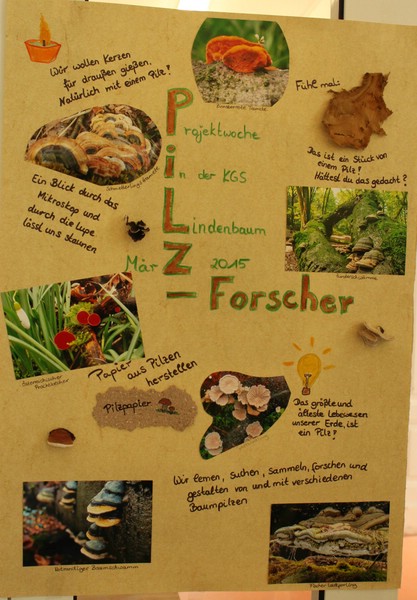 Wir wollen Kerzen
für draußen gießen.
Natürlich mit einem Pilz!
Fühl mal:
Das ist ein Stück von
einem Pilz!
Hättest du das gedacht?
Schmetterlingstramete
Ein Blick durch das
Mikroskop und
durch die Lupe
lässt uns staunen
Projektwoche
in der KGS
Lindenbaum
März 2015
PILZ-Forscher
Zunderschwamm
Österreichischer
Prachtbecher
Papier aus Pilzen
herstellen
Pilzpapier
Das größte und
älteste Lebewesen
unserer Erde, ist
ein Pilz!
Wir lernen, suchen, sammeln, forschen und
gestalten von und mit verschiedenen
Baumpilzen